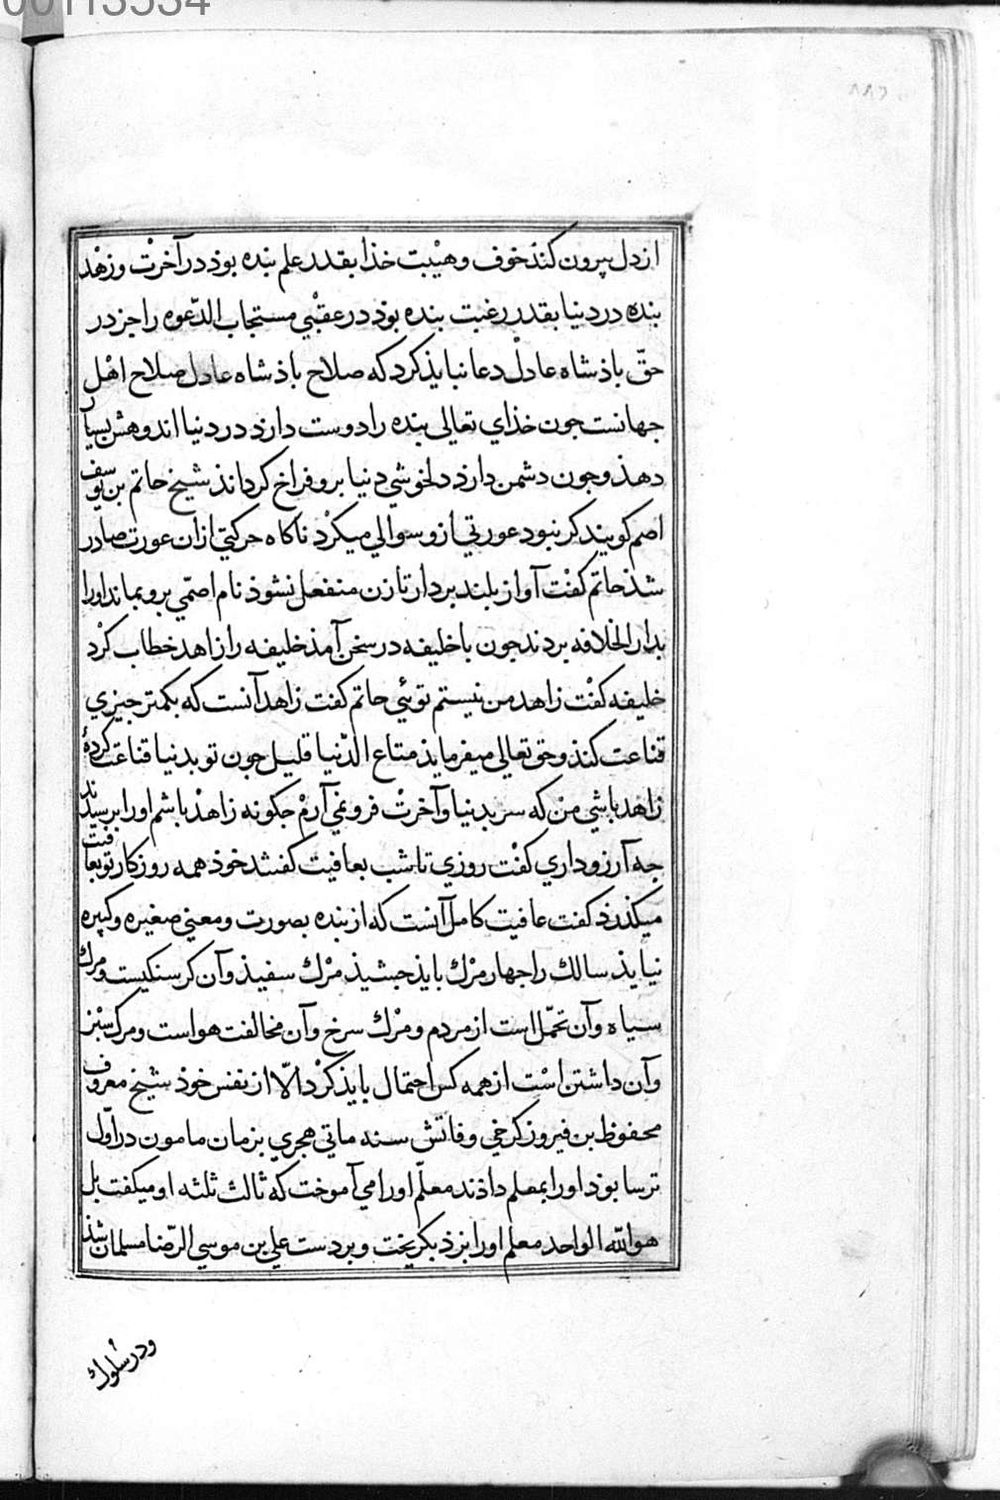 00113534
از دل بیرون کند خوف و هیبت خذا بقدر علم بنده بوذ در آخرت و زهد
بنده در دنیا بقدر رغبت بنده بوذ در عقبی مستجاب الدّعوه را جز در
حقّ باذشاه عادل دعا نبایذ کرد که صلاح باذشاه عادل صلاح اهل
جهانست جون خذای تعالی بنده را دوست دارد در دنیا اندوهش بسیار
دهذ و جون دشمن دارد دلخوشی دنیا برو فراخ کرداند شیخ حاتم بن یوسف
اصم کویند کر نبود عورتی ازو سوالی میکرد ناکاه حرکتی ازان عورت صادر
شذ حاتم کفت آواز بلند بردار تا زن منفعل نشوذ نام اصمّی برو بماند اورا
بدار الخلافه بردند جون با خلیفه در سخن آمذ خلیفه را زاهد خطاب کرد
خلیفه کفت زاهد من نیستم توئی حاتم کفت زاهد آنست که بکمتر جیزی
قناعت کند و حق تعالی میفرمایذ متاع الدّنیا قلیل جون تو بدنیا قناعت کردهٔ
زاهد باشی من که سر بدنیا و آخرت فرو نمی آرم جکونه زاهد باشم اورا برسیدند
جه آرزو داری کفت روزی تا شب بعافیت کفتند خوذ همه روزکار تو بعافیت
میکذرد کفت عافیت کامل آنست که از بنده بصورت و معنی صغیره و کبیره
نیایذ سالک را جهار مرک بایذ جشیذ مرک سفیذ و آن کرسنکیست و مرک
سیاه و آن تحمّل است از مردم و مرک سرخ و آن مخالفت هواست و مرک سبز
و آن داشتن است از همه کس احتمال بایذ کرد الّا از نفس خوذ شیخ معروف
محفوظ بن فیروز کرخی وفاتش سنه ماتی هجری بزمان مامون در اوّل
ترسا بوذ اورا بمعلم داذند معلّم اورا می آموخت که ثالث ثلثه او میکفت بل
هو الله الواحد معلم اورا بزذ بکریخت و بر دست علی بن موسی الرّضا مسلمان شذ
و در سلوک